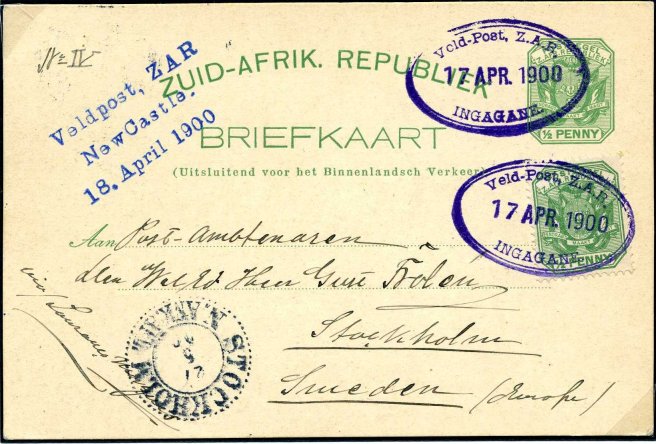 No IV
ZUID-AFRIK. REPUBLIEK
BRIEFKAART
(Uitsluitend voor het Binnenlandsch Verkeer)
Veldpost, ZAR
NewCastle.
18. April 1900
Veld-Post, Z.A.R.
17 APR. 1900
INGAGANE
½ PENNY
Veld-Post, Z.A.R.
17 APR. 1900
INGAGANE
½ PENNY
Aan Post-Ambtenaren
den Wel.Ed. Heer Gust Frölén
Stockholm
Sweden (Europe)
via
STOCKHOLM
21
5